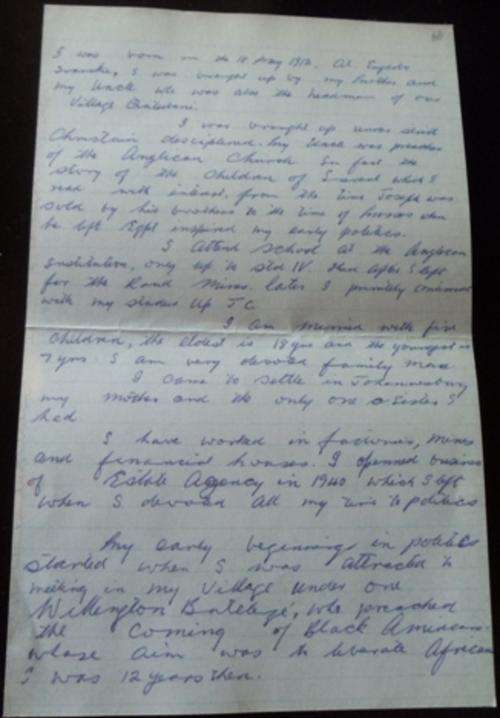 I was born on the 18 May 1912. At Engcobo
Transkei, I was brought up by my mother and
my Uncle who was also the headman of our
Village Qutubeni.
I was brought up under strict
Christain desciplered. my Uncle was preacher
of the Anglican Church In fact the
story of the children of Israel which I
read with interest. from the time Joseph was
sold by his brothers to the time of Moses when
he left Egypt inspired my early politics.
I attend school at the Anglican
Institution, only up to std IV. then after I left
for the Rand Mines. later I privately continued
with my studies up J C.
I am married with five
children, the eldest is 18 yrs and the youngest is
7 yrs. I am very devoted family man
I came to settle in Johannesburg
my mother and the only one sister I
had
I have worked in factories, mines
and financial houses. I openned business
of Estate Agency in 1940 which I left
when I devoted all my time to politics
My early beginnings in politics
started when I was attracted to
meeting in my Village under one
Wellington Butelezi, who preached
the coming of Black Americans
whose aim was to liberate African
I was 12 years then.